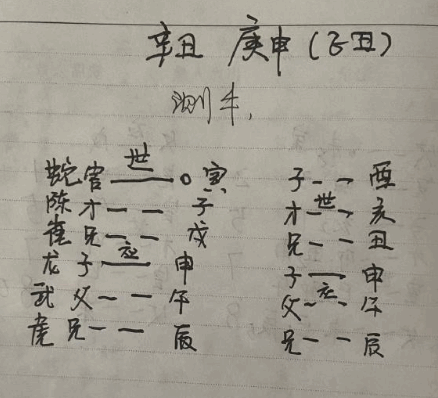 辛丑 庚申(子丑)
测牛.
世
蛇官 — ○ 寅 子 - - 酉
陈才 - - 子 才 - 世 - 亥
雀兄 - - 戌 兄 - - 丑
龙子 — 应 申 子 — 申
武父 - - 午 父 - 应 - 午
虎兄 - - 辰 兄 - - 辰